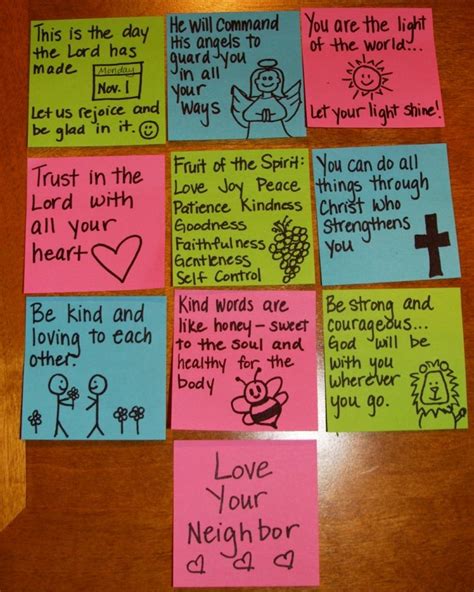 This is the day
the Lord has
made
Monday
Nov. 1
Let us rejoice and
be glad in it.
He Will Command
His angels to
guard you
in all
your
Ways
You are the light
of the world...
Let your light shine!
Trust in the
Lord with
all your
heart
Fruit of the Spirit:
Love Joy Peace
Patience Kindness
Goodness
Faithfulness
Gentleness
Self Control
You can do all
things through
Christ who
strengthens
you
Be kind and
loving to each
other.
Kind words are
like honey - sweet
to the soul and
healthy for the
body
Be strong and
courageous...
God will be
with you
wherever
you go.
Love
Your
Neighbor